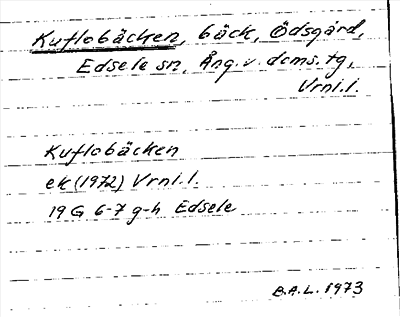 Kuflobäcken, bäck, Ödsgård,
Edsele sn, Ång. v. dcms. tg,
Vrnl.l.
Kuflobäcken
ek (1972) Vrnl.l.
19 G 6-7 g-h Edsele
B.A.L. 1973